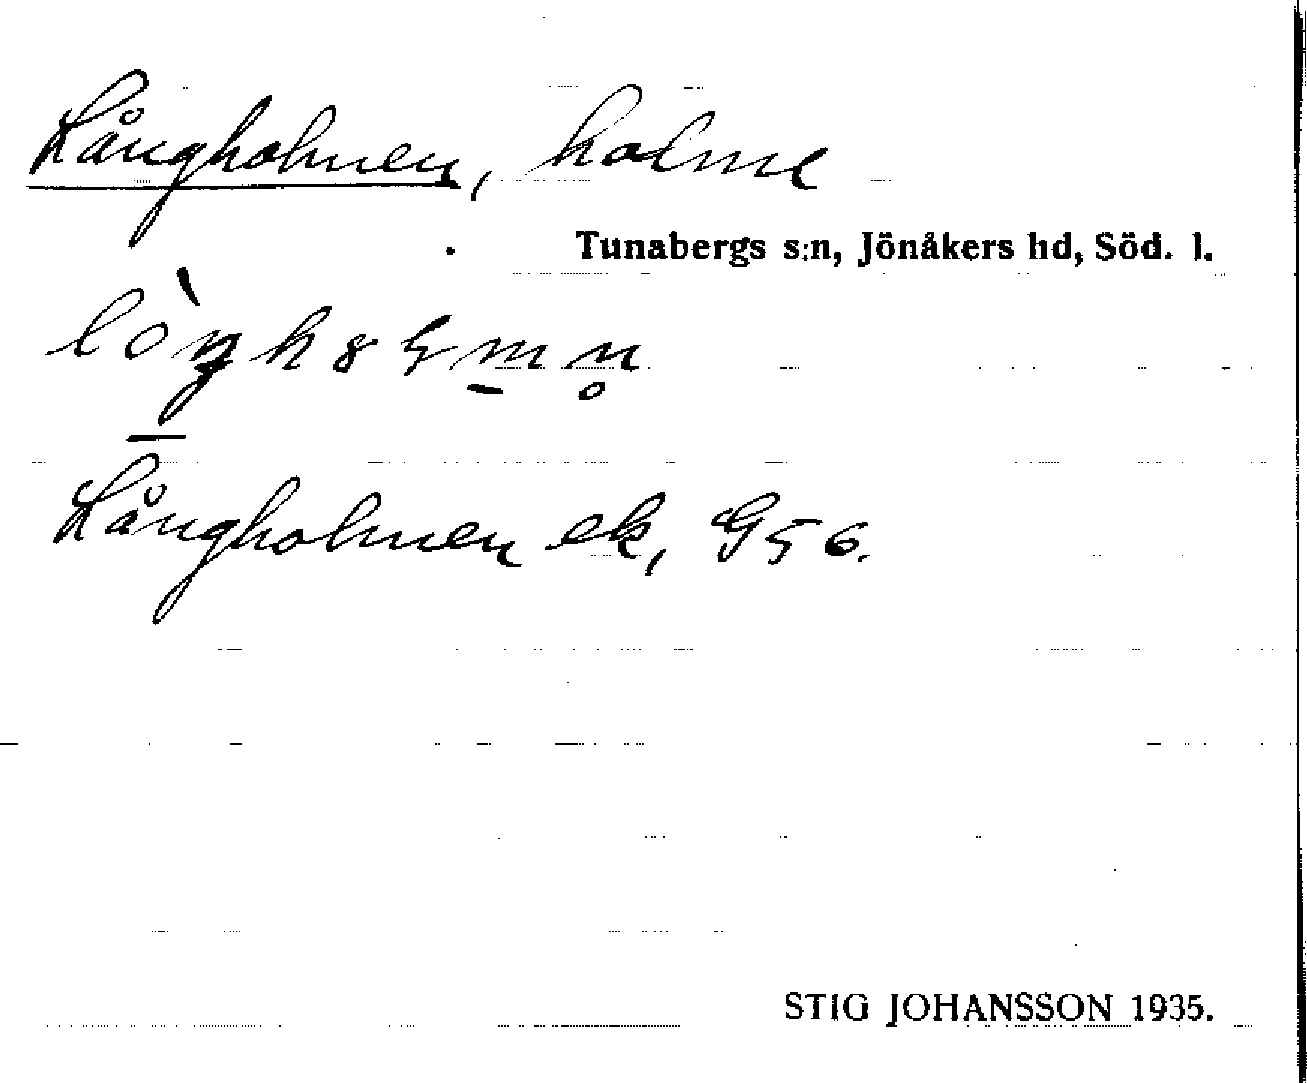 Långholmen, holme
Tunabergs s:n, Jönåkers hd, Söd. l.
Långholmen ek, G 56.
STIG JOHANSSON 1935.